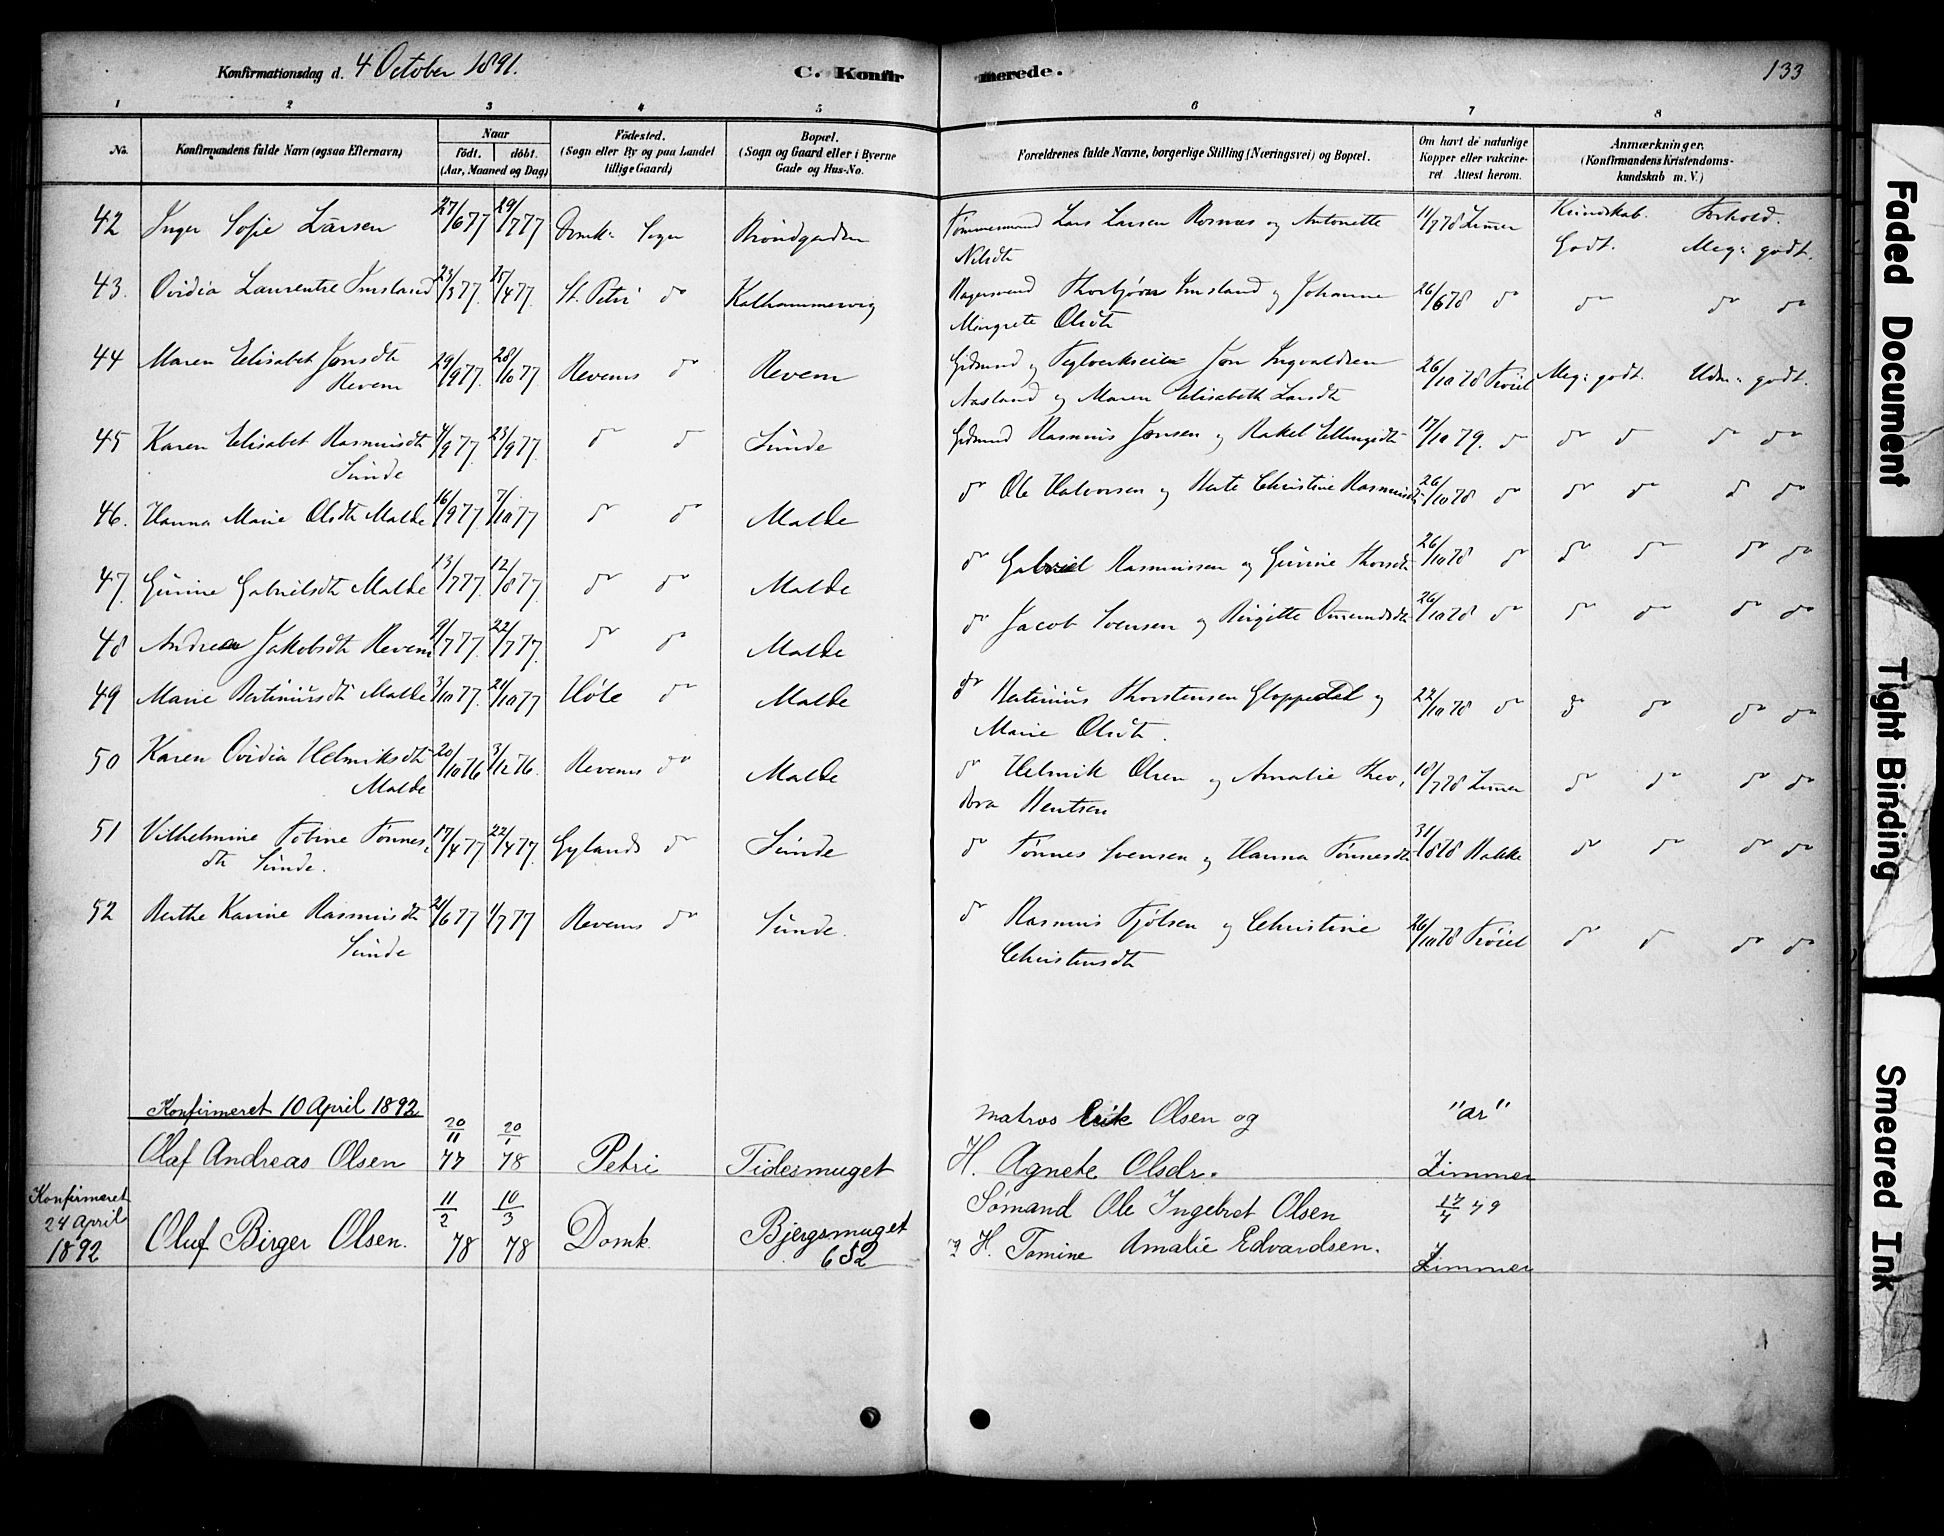 Konfirmationsdag d. 4 October 1891.
C. Konfirmerede.
133
1 2 3 4 5 6 7 8
No.
Konfirmandens fulde Navn (ogsaa Efternavn)
Naar
født. døbt.
(Aar, Maaned og Dag)
Fødested.
(Sogn eller By og paa Landet
tillige Gaard)
Bopæl.
(Sogn og Gaard eller i Byerne
Gade og Hus-No.
Forældrenes fulde Navne, borgerlige Stilling (Næringsvei) og Bopæl.
Om havt de naturlige
Kopper eller vakcine-
ret Attest herom.
Anmærkninger.
(Konfirmandens Kristendoms-
kundskab m. V.)
Kundskab. Forhold.
42 Inger Sofie Larsen 27/6 77 29/7 77 Domk: Sogn Lars Larsen Rosnæs og Antonette 11/7 78 Zimer Godt. Meg: godt.
Nilsdt
43. Ovidia Laurentse Imsland 23/3 77. 15/4 77. St. Petri do Kalhammervig Thorbjørn Imsland og Johanne 26/6 78 do do do do
Mingrete Olsdt
44 Maren Elisabet Jonsdt 29/9 77. 28/10 77 Revems do Revem Grdmand og Teglverkseier Jon Ingvaldsen 26/10 78 Meg: godt. Udm: godt.
Revem
Aasland og Maren Elisabeth Larsdt
45 Karen Elisabet Rasmusdt 4/9 77 23/9 77. do do Sunde Grdmand Rasmus Jonsen og Rakel Ellingsdt 17/10 79. do do do do do
Sunde
46. Hanna Marie Olsdt Malde 16/9 77 7/10 77 do do Malde do Ole Halvorsen og Christine Rasmusdt 26/10 78 do do do do do
47. Gurine Gabrielsdt Malde 13/7 77. 12/8 77 do do Malde do Gabriel Rasmussen og Gurine Thorsdt 26/10 78 do do do do do
48 Andrea Jakobsdt Revem 9/7 77. 22/7 77. do do Malde do Jacob Svensen og Birgitte Omundsdt 26/10 78 do do do do do
49 Marie Bertiniusdt Malde 3/10 77. 21/10 77 Høle do Malde do Thorstensen Gloppedal og 22/10 78 do do do do do
Marie Olsdt.
50 Karen Ovidia Helmiksdt 20/10 76 3/12 76. Revems do Malde do Helmik Olsen og Amalie Theo, 18/7 78 Zimer do do do do
Malde
dora Bentsen
51 Vilhelmine Tobine Tønnes, 17/4 77. 22/4 77. Gylands do Sunde do Tønnes Svensen og Hanna Tønnesdt 31/8 78 do do do do
dt Sunde.
52 Berthe Karine Rasmusdt 21/6 77 1/7 77 Revems do Sunde. do Rasmus Fjølsen og Christine 26/10 78 do do do do
Sunde
Christensdt
Konfirmeret 10 April 1892
Olaf Andreas Olsen 20/11 77 20/1 78 Petri Tidesmuget Matros Erik Olsen og "ar"
H. Agnete Olsdr. Zimmer
Konfirmeret
24 April
1892
Oluf Birger Olsen. 11/2 78 10/3 78 Domk. Bjergsmuget
652
Sømand Ole Ingebret Olsen 17/4 79
og H. Tomine Amalie Edvardsen. Zimmer
Faded Document
Tight Binding
Smeared Ink